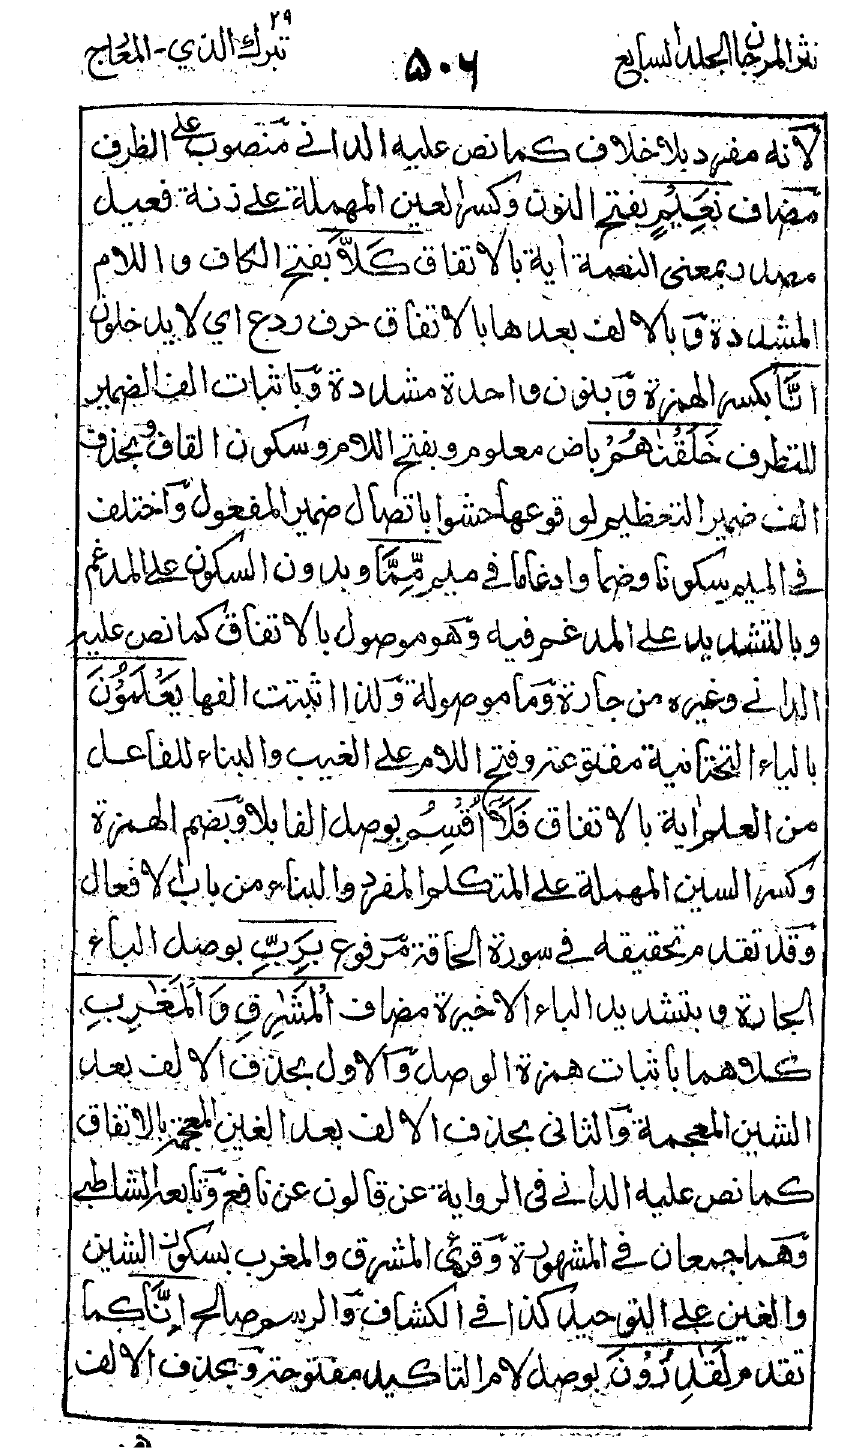 نثر المرجان الجلد السابع
٥٠٦
تبرك الذي ٢٩ - المعارج
لانه مفرد بلا خلاف كما نص عليه الدانى منصوب على الظرف
مضاف نَعِيْمٍ بفتح النون وكسر العين المهملة على زنة فعيل
مصدر بمعنى النعمة اية بالاتفاق كَلَّا بفتح الكاف واللام
المشددة وبالالف بعدها بالاتفاق حرف ردع اي لا يدخلون
اِنَّا بكسر الهمزة وبنون واحدة مشددة وباثبات الف الضمير
للتطرف خَلَقْنٰهُمْ ماض معلوم وبفتح اللام وسكون القاف وبحذف
الف ضمير التعظيم لوقوعها حشوا باتصال ضمير المفعول واختلف
فى الميم سكونا وضما وادغاما فى ميم مِّمَّا وبدون السكون على المدغم
وبالتشديد على المدغم فيه وهو موصول بالاتفاق كما نص عليه
الدانى وغيره من جارة وما موصولة ولذا اثبتت الفها يَعْلَمُوْنَ
بالياء التحتانية مفتوحة وفتح اللام على الغيب والبناء للفاعل
من العلم اية بالاتفاق فَلَآ اُقْسِمُ بوصل الفا بلا وبضم الهمزة
وكسر السين المهملة على المتكلم المفرد والبناء من باب الافعال
وقد تقدم تحقيقه فى سورة الحاقة مرفوع بِرَبِّ بوصل الباء
الجارة وبتشديد الباء الاخيرة مضاف الْمَشٰرِقِ وَالْمَغٰرِبِ
كلاهما باثبات همزة الوصل والاول بحذف الالف بعد
الشين المعجمة والثانى بحذف الالف بعد الغين المعجمة بالاتفاق
كما نص عليه الدانى فى الرواية عن قالون عن نافع وتابعه الشاطبى
وهما جمعان فى المشهورة وقرئ المشرق والمغرب بسكون الشين
والغين على التوحيد كذا فى الكشاف والرسم صالح اِنَّا كما
تقدم لَقٰدِرُوْنَ بوصل لام التاكيد مفتوحة وبحذف الالف